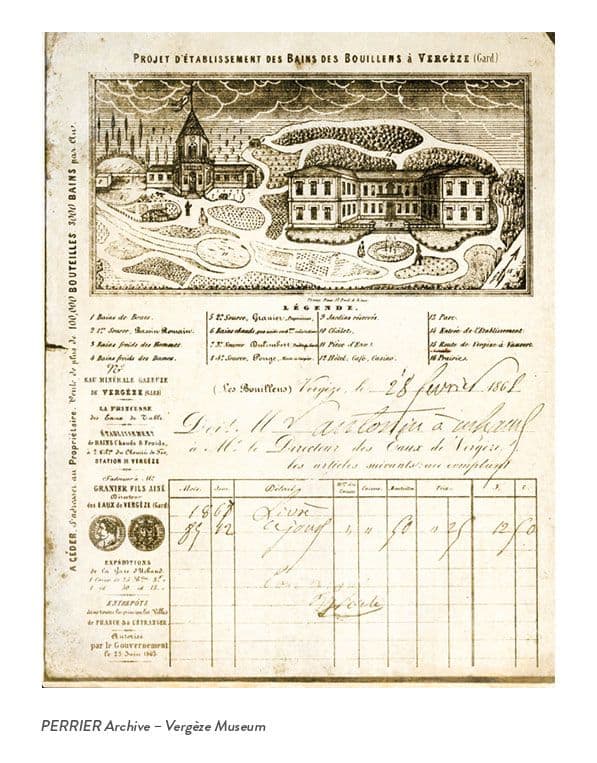 PROJET D'ÉTABLISSEMENT DES BAINS DES BOUILLENS à VERGÈZE (Gard)
LÉGENDE.
1 Bains de Boues.
2 1re Source, Bassin Romain.
3 Bains froids des Hommes
4 Bains froids des Dames.
5 2e Source, Granier,
6 Bains chauds
7 3e Source
8 4e Source, Rouge,
9 Jardins réservés.
10 Châlets.
11 Pièce de Eau
12 Hôtel, Café, Casino.
13 Parc.
14 Entrée de l'Etablissement.
15 Route de Vergèze à Vauvert
16 Prairies
A CÉDER, S'adresser au Propriétaire. Vente de plus de 100,000 BOUTEILLES 3000 BAINS par An.
No
EAU MINÉRALE GAZEUZE
DE VERGÈZE (GARD)
LA PRINCESSE
des Eaux de Table
ÉTABLISSEMENT
de BAINS Chauds & Froids,
du Chemin de Fer,
STATION DE VERGÈZE
S'adresser à Mr
GRANIER FILS AINÉ
Directeur
des EAUX de VERGÈZE (Gard)
EXPÉDITIONS
de la Gare d'Uchaud
ENTREPÔTS
dans toutes les principales Villes
de FRANCE & à L'ÉTRANGER.
Autorisé
par le Gouvernement
le 23 Juin 1863
(Les Bouillens) Vergèze, le 28 février 1868
Doit M
à Mr le Directeur des Eaux de Vergèze,
les articles suivants: au comptant
Mois. Jour. Détails Caisses. Bouteilles Prix. F. C.
1867
50 25 12 50
PERRIER Archive – Vergèze Museum